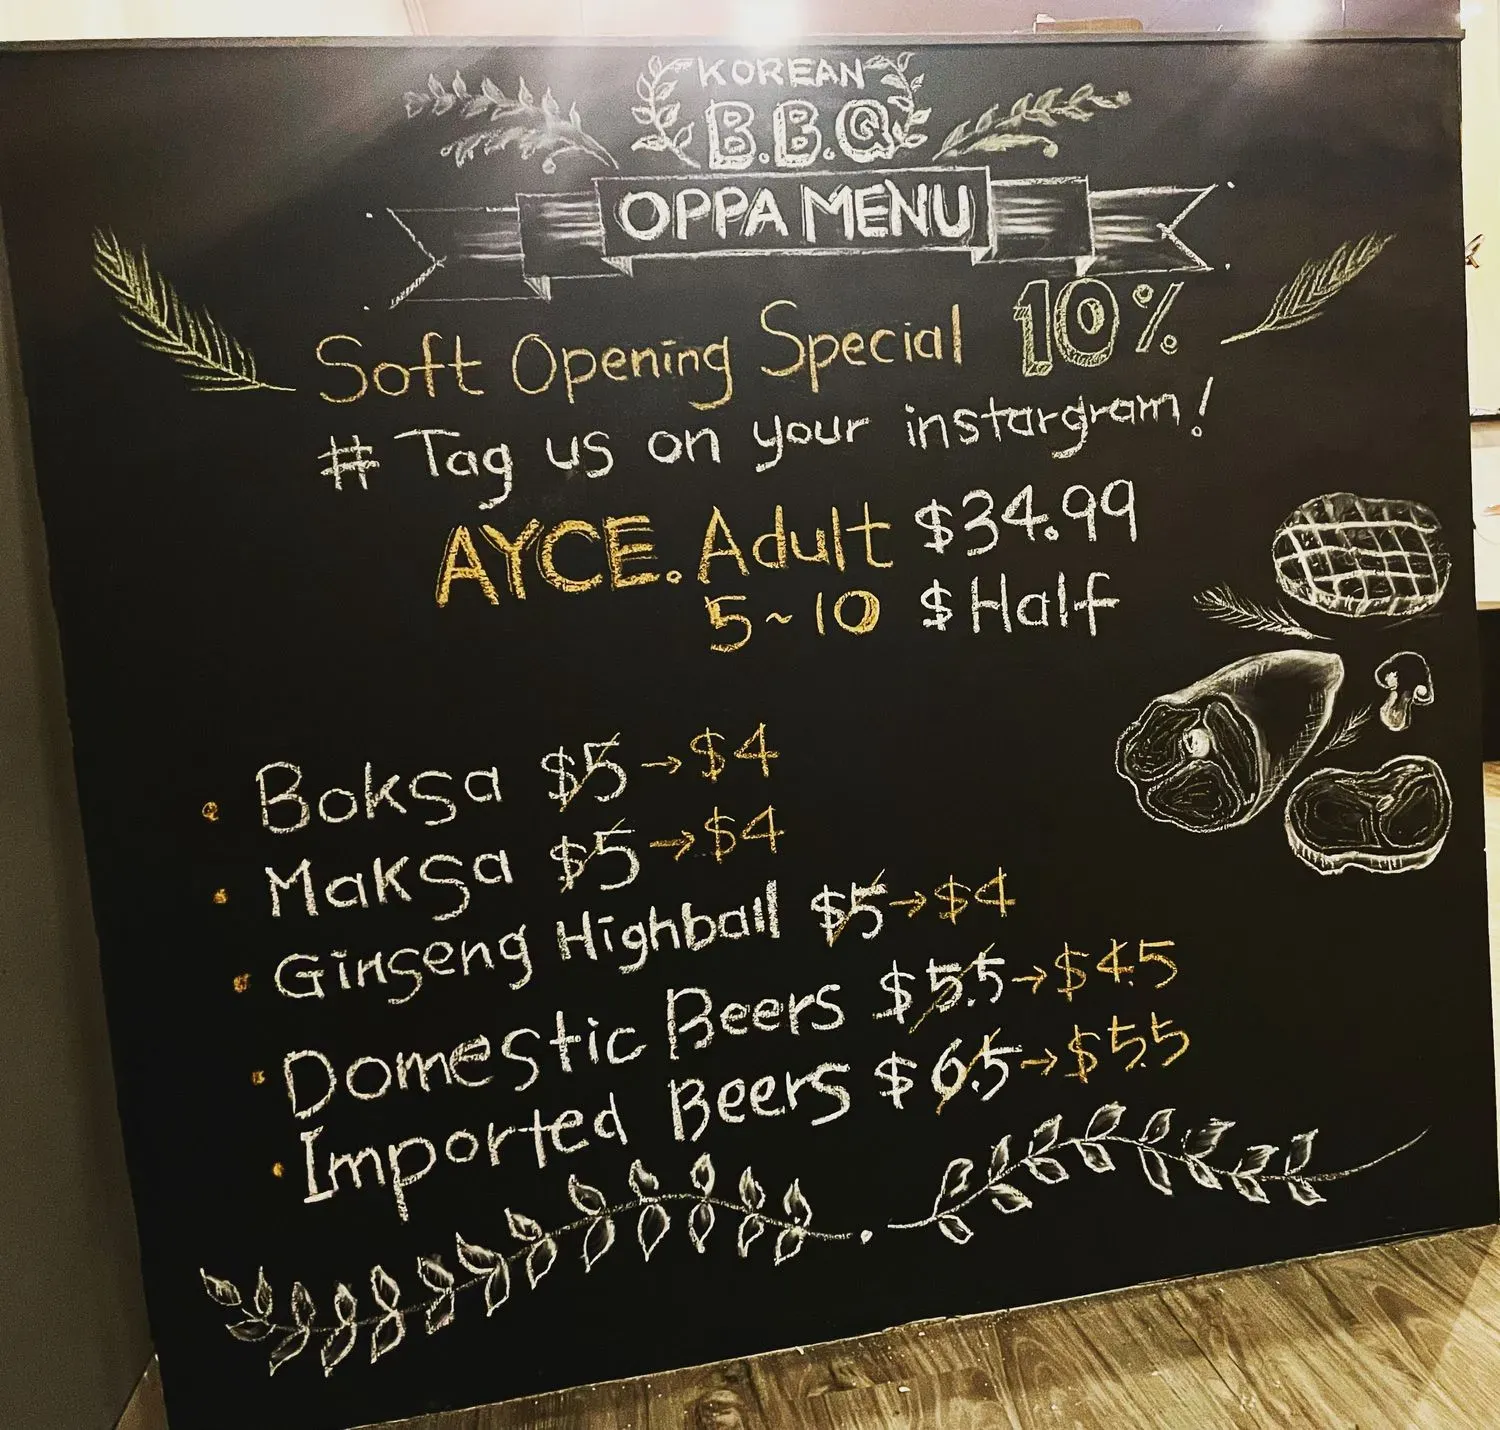 KOREAN
B.B.Q
OPPA MENU
Soft Opening Special 10%
# Tag us on your instargram!
AYCE. Adult $34.99
5~10 $Half
• Boksa $5→$4
• Maksa $5→$4
• Ginseng Highball $5→$4
• Domestic Beers $5.5→$4.5
• Imported Beers $6.5→$5.5